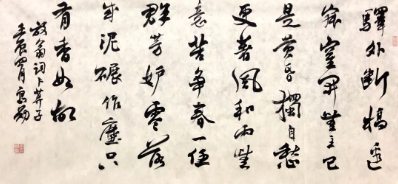 驛外斷橋邊
寂寞開無主已
是黄昏獨自愁
更著風和雨無
意苦争春一任
群芳妒零落
成泥碾作塵只
有香如故
放翁詞卜算子
壬辰四月